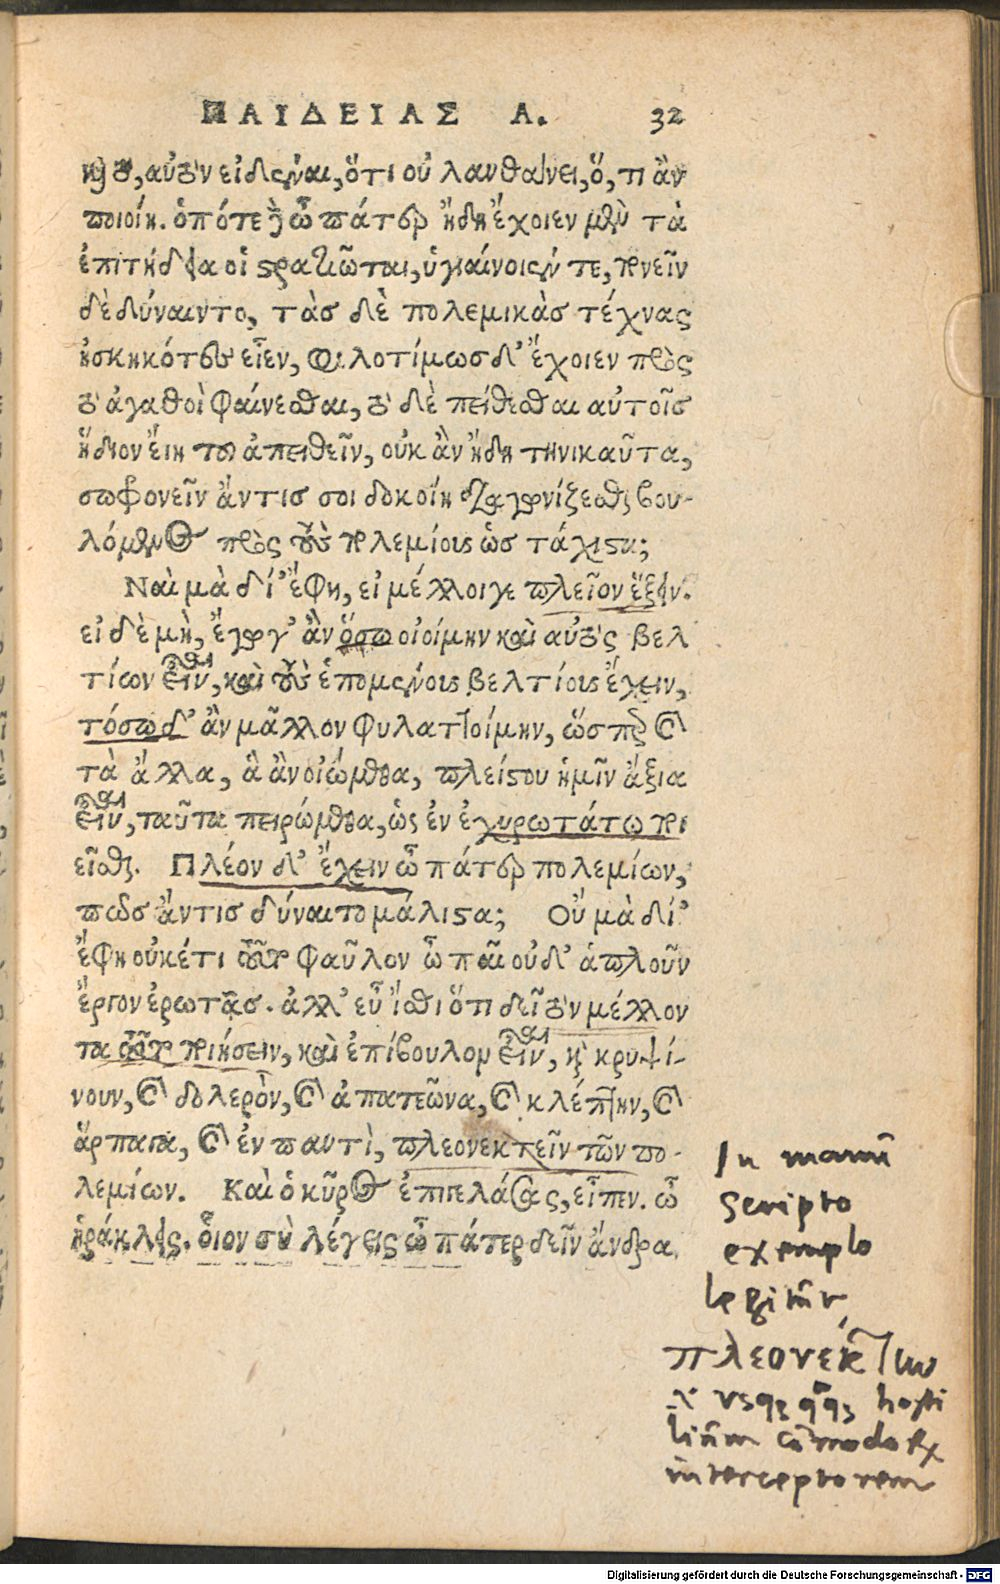 ΠΑΙΔΕΙΑΣ Α. 32
καὶ τὸ, αὐτὸν εἰδέναι, ὅτι οὐ λανθάνει, ὅ, τι ἂν
ποιοίη. ὁπότε δὲ ὦ πάτερ ἤδη ἔχοιεν μὲν τὰ
ἐπιτήδεια οἱ στρατιῶται, ὑγιαίνοιέν τε, πονεῖν
δὲ δύναιντο, τὰσ δὲ πολεμικὰσ τέχνας
ἠσκηκότες εἶεν, φιλοτίμωσ δ' ἔχοιεν πρὸς
τὸ ἀγαθοὶ φαίνεσθαι, τὸ δὲ πείθεσθαι αὐτοῖσ
ἥδιον εἴη τοῦ ἀπειθεῖν, οὐκ ἂν ἤδη τηνικαῦτα,
σωφρονεῖν ἄντισ σοι δοκοίη διαγωνίζεσθαι βου-
λόμενος πρὸς τοὺς πολεμίους ὡσ τάχιστα;
Ναὶ μὰ δί' ἔφη, εἰ μέλλοιγε πλεῖον ἕξειν.
εἰ δὲ μὴ, ἔγωγ' ἂν ὅσω οἰοίμην καὶ αὐτὸς βελ
τίων εἶναι, καὶ τοὺς ἑπομένους βελτίους ἔχειν,
τόσω δ' ἂν μᾶλλον φυλαττοίμην, ὥσπερ καὶ
τὰ ἄλλα, ἃ ἂν οἰώμεθα, πλείστου ἡμῖν ἄξια
εἶναι, ταῦτα πειρώμεθα, ὡς ἐν ἐχυρωτάτω ποι
εῖσθαι. Πλέον δ' ἔχειν ὦ πάτερ πολεμίων,
πῶσ ἄντισ δύναιτο μάλιστα; Οὐ μὰ δί'
ἔφη οὐκέτι τοῦτο φαῦλον ὦ παῖ οὐδ' ἁπλοῦν
ἔργον ἐρωτᾷσ. ἀλλ' εὖ ἴσθι ὅτι δεῖ τὸν μέλλον
τα τοῦτο ποιήσειν, καὶ ἐπίβουλον εἶναι, καὶ κρυψί-
νουν, καὶ δολερὸν, καὶ ἀπατεῶνα, καὶ κλέπτην, καὶ
ἅρπαγα, καὶ ἐν παντὶ, πλεονεκτεῖν τῶν πο-
λεμίων. Καὶ ὁ κῦρος ἐπιγελάσας, εἶπεν. ὦ
ἡράκλεις. οἷον σὺ λέγεις ὦ πάτερ δεῖν ἄνδρα
In manu
scripto
exemplo
legitur
πλεονέκτην
usque quaque hosti
lium commodorum
interceptorem
Digitalisierung gefördert durch die Deutsche Forschungsgemeinschaft - DFG